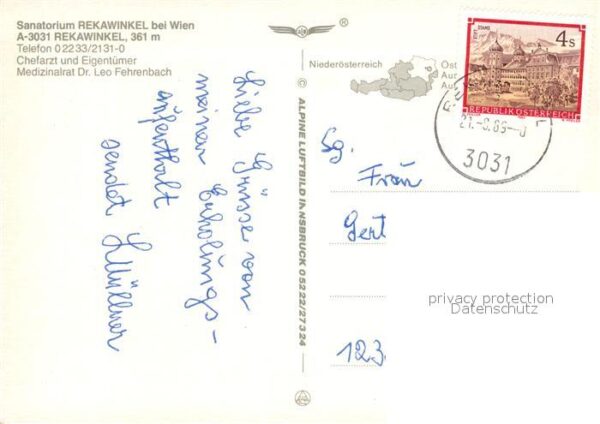 Sanatorium REKAWINKEL bei Wien
A-3031 REKAWINKEL, 361 m
Telefon 0 22 33/2131-0
Chefarzt und Eigentümer
Medizinalrat Dr. Leo Fehrenbach
®
Niederösterreich
Öst
Aus
Aus
STIFT STAMS
4s
REPUBLIK ÖSTERREICH
3031
© ALPINE LUFTBILD INNSBRUCK 05222/27324
Liebe Grüsse von
meinem Erholungs-
aufenthalt
sendet
Sg.
Frau
Gert
123
privacy protection
Datenschutz